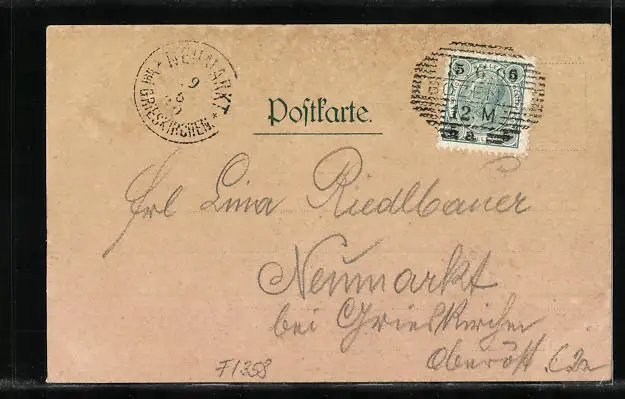 NEUMARKT
9
5
BEI GRIESKIRCHEN
5 5
12. M
Postkarte.
Frl Lina Riedlbauer
Neumarkt
bei Grieskirchen
Oberöst
F1358